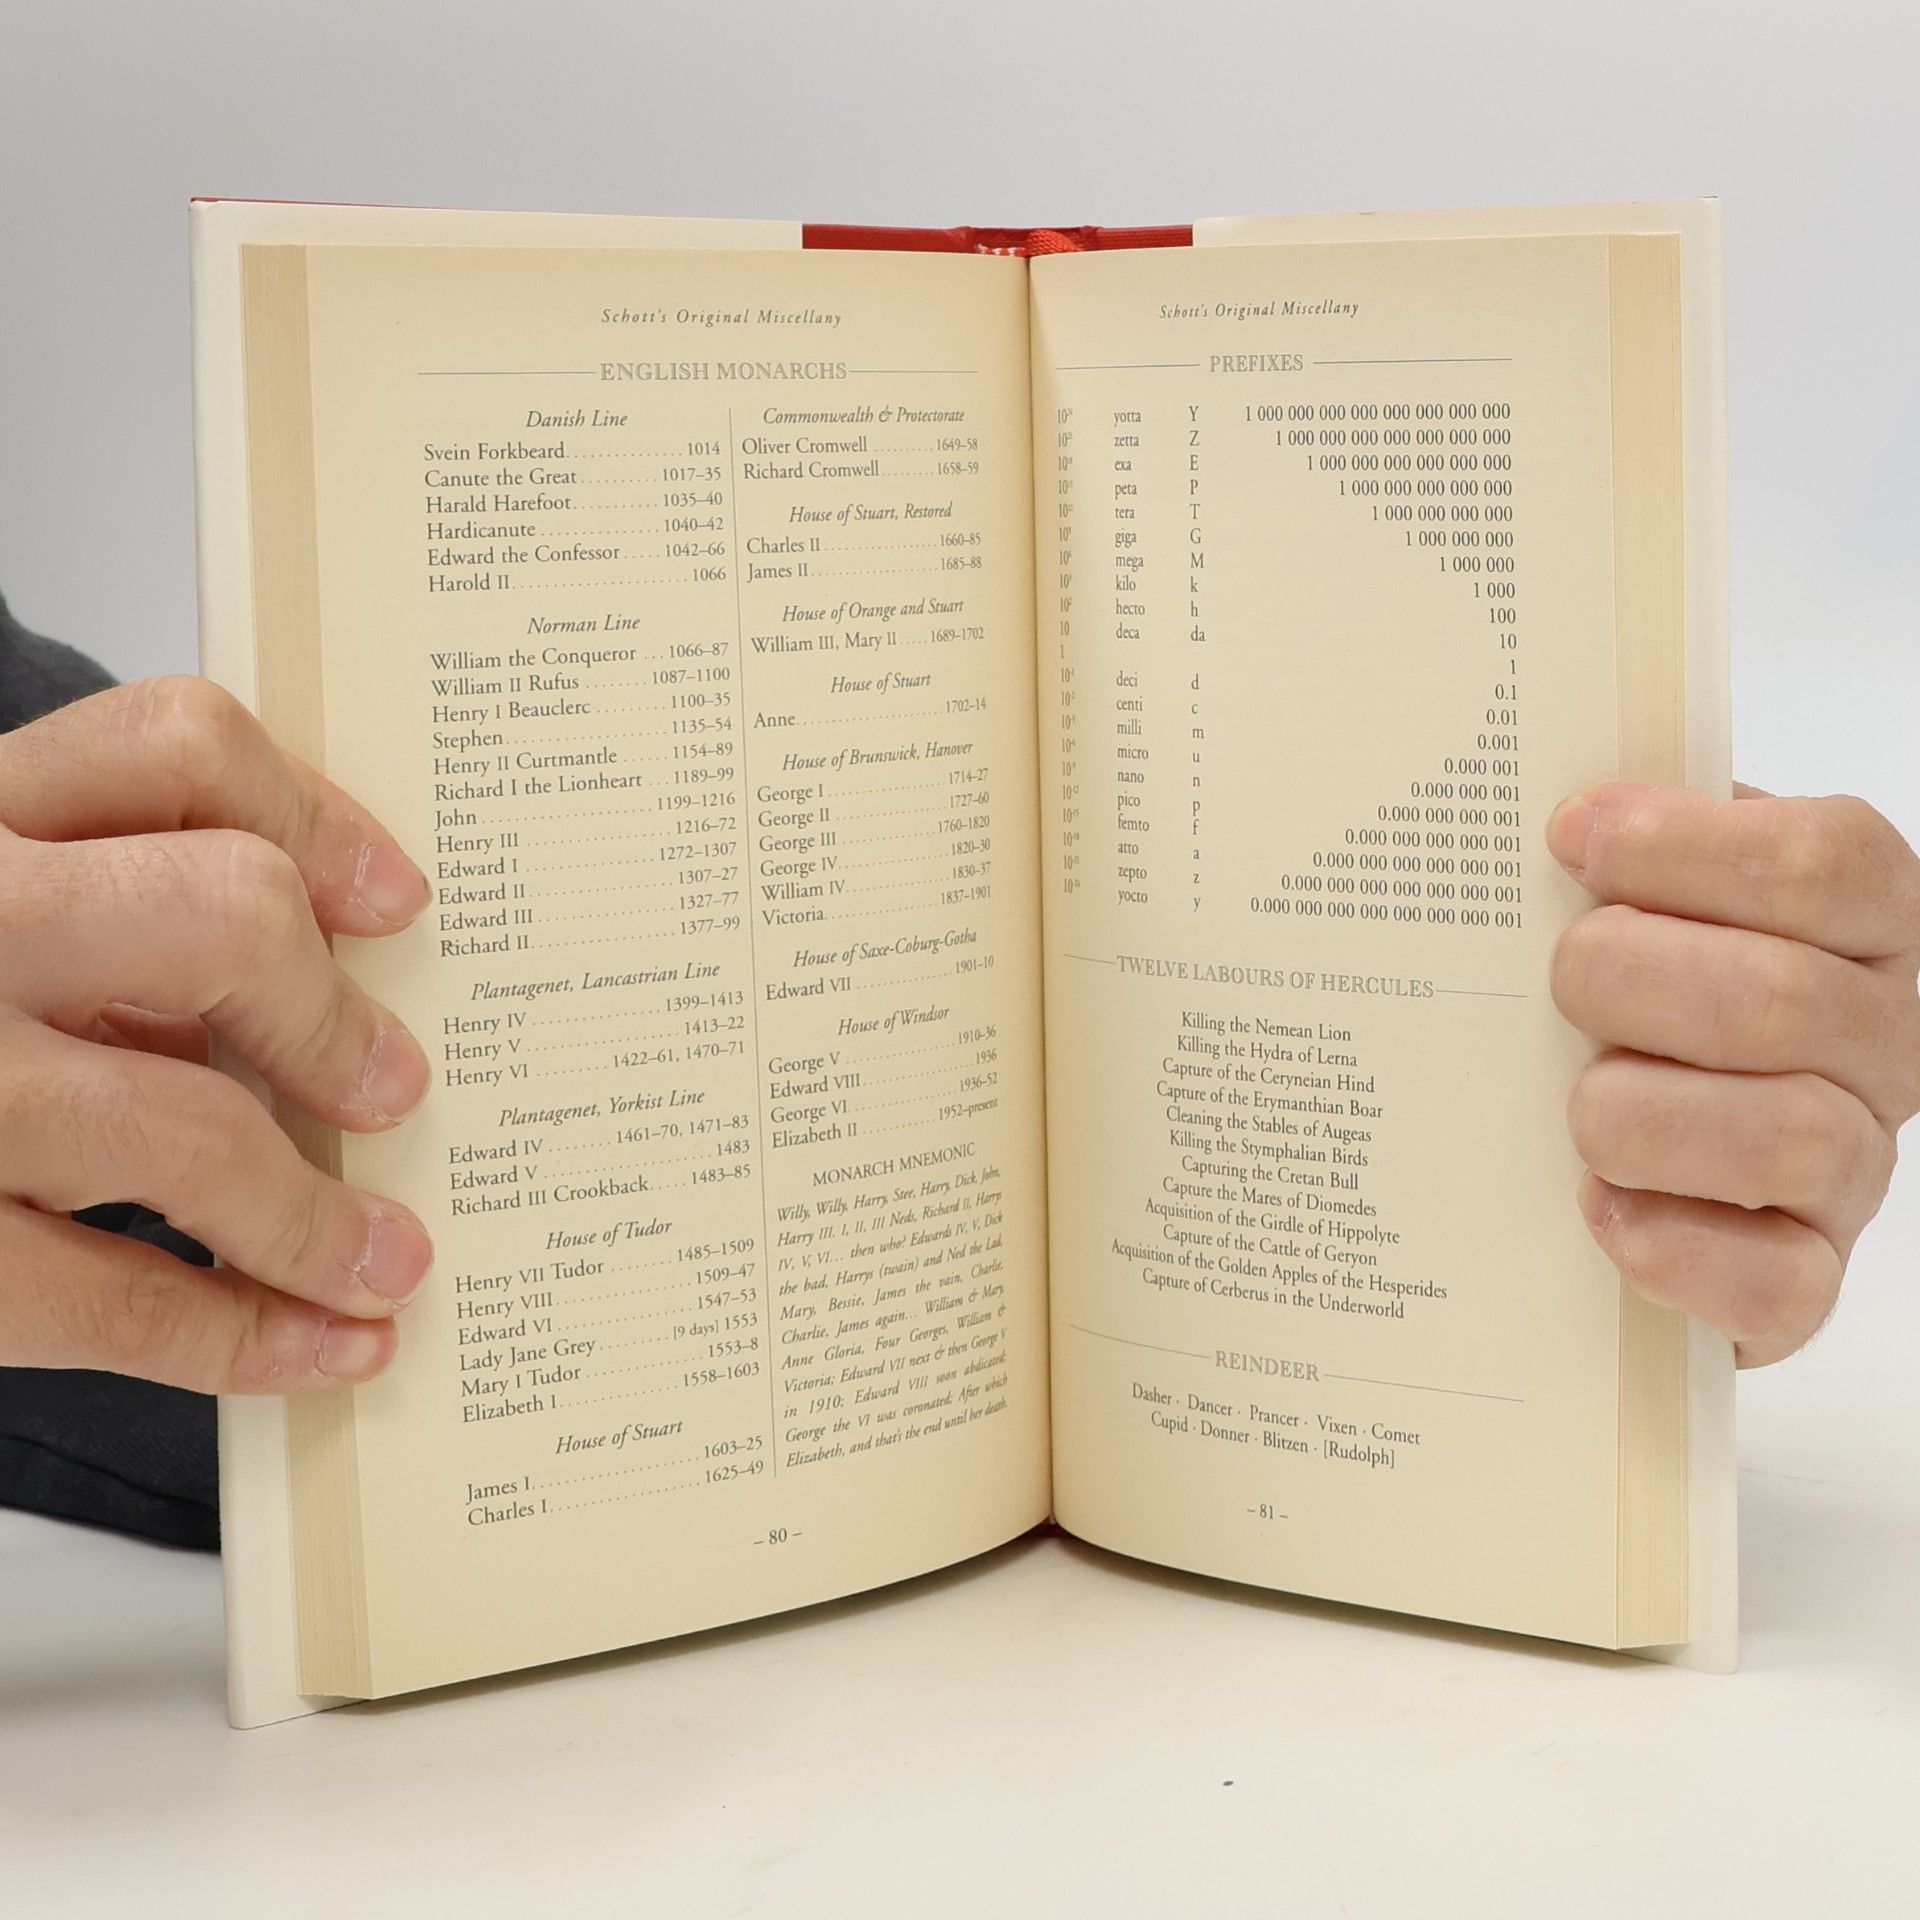 Schott's Original Miscellany
ENGLISH MONARCHS
Danish Line
Svein Forkbeard............... 1014
Canute the Great.......... 1017–35
Harald Harefoot............ 1035–40
Hardicanute ................ 1040–42
Edward the Confessor..... 1042–66
Harold II........................ 1066
Norman Line
William the Conqueror ... 1066–87
William II Rufus ........ 1087–1100
Henry I Beauclerc ......... 1100–35
Stephen..................... 1135–54
Henry II Curtmantle ...... 1154–89
Richard I the Lionheart ... 1189–99
John ..................... 1199–1216
Henry III .................. 1216–72
Edward I ................. 1272–1307
Edward II.................. 1307–27
Edward III ................. 1327–77
Richard II.................. 1377–99
Plantagenet, Lancastrian Line
Henry IV ................ 1399–1413
Henry V .................... 1413–22
Henry VI ......... 1422–61, 1470–71
Plantagenet, Yorkist Line
Edward IV ........ 1461–70, 1471–83
Edward V ...................... 1483
Richard III Crookback..... 1483–85
House of Tudor
Henry VII Tudor ........ 1485–1509
Henry VIII.................. 1509–47
Edward VI .................. 1547–53
Lady Jane Grey ........ [9 days] 1553
Mary I Tudor ............... 1553–8
Elizabeth I............... 1558–1603
House of Stuart
James I..................... 1603–25
Charles I................... 1625–49
Commonwealth & Protectorate
Oliver Cromwell .......... 1649–58
Richard Cromwell........ 1658–59
House of Stuart, Restored
Charles II .................. 1660–85
James II.................... 1685–88
House of Orange and Stuart
William III, Mary II..... 1689–1702
House of Stuart
Anne....................... 1702–14
House of Brunswick, Hanover
George I ................... 1714–27
George II .................. 1727–60
George III ............... 1760–1820
George IV.................. 1820–30
William IV................. 1830–37
Victoria.................. 1837–1901
House of Saxe-Coburg-Gotha
Edward VII ................ 1901–10
House of Windsor
George V .................. 1910–36
Edward VIII.................. 1936
George VI.................. 1936–52
Elizabeth II ............ 1952–present
MONARCH MNEMONIC
Willy, Willy, Harry, Stee, Harry, Dick, John,
Harry III. I, II, III Neds, Richard II, Harrys
IV, V, VI... then who? Edwards IV, V, Dick
the bad, Harrys (twain) and Ned the Lad,
Mary, Bessie, James the vain, Charlie,
Charlie, James again... William & Mary,
Anne Gloria, Four Georges, William &
Victoria; Edward VII next & then George V
in 1910; Edward VIII soon abdicated:
George the VI was coronated; After which
Elizabeth, and that's the end until her death.
– 80 –
Schott's Original Miscellany
PREFIXES
10²⁴ yotta Y 1 000 000 000 000 000 000 000 000
10²¹ zetta Z 1 000 000 000 000 000 000 000
10¹⁸ exa E 1 000 000 000 000 000 000
10¹⁵ peta P 1 000 000 000 000 000
10¹² tera T 1 000 000 000 000
10⁹ giga G 1 000 000 000
10⁶ mega M 1 000 000
10³ kilo k 1 000
10² hecto h 100
10 deca da 10
1 1
10⁻¹ deci d 0.1
10⁻² centi c 0.01
10⁻³ milli m 0.001
10⁻⁶ micro u 0.000 001
10⁻⁹ nano n 0.000 000 001
10⁻¹² pico p 0.000 000 000 001
10⁻¹⁵ femto f 0.000 000 000 000 001
10⁻¹⁸ atto a 0.000 000 000 000 000 001
10⁻²¹ zepto z 0.000 000 000 000 000 000 001
10⁻²⁴ yocto y 0.000 000 000 000 000 000 000 001
TWELVE LABOURS OF HERCULES
Killing the Nemean Lion
Killing the Hydra of Lerna
Capture of the Ceryneian Hind
Capture of the Erymanthian Boar
Cleaning the Stables of Augeas
Killing the Stymphalian Birds
Capturing the Cretan Bull
Capture the Mares of Diomedes
Acquisition of the Girdle of Hippolyte
Capture of the Cattle of Geryon
Acquisition of the Golden Apples of the Hesperides
Capture of Cerberus in the Underworld
REINDEER
Dasher · Dancer · Prancer · Vixen · Comet
Cupid · Donner · Blitzen · [Rudolph]
– 81 –